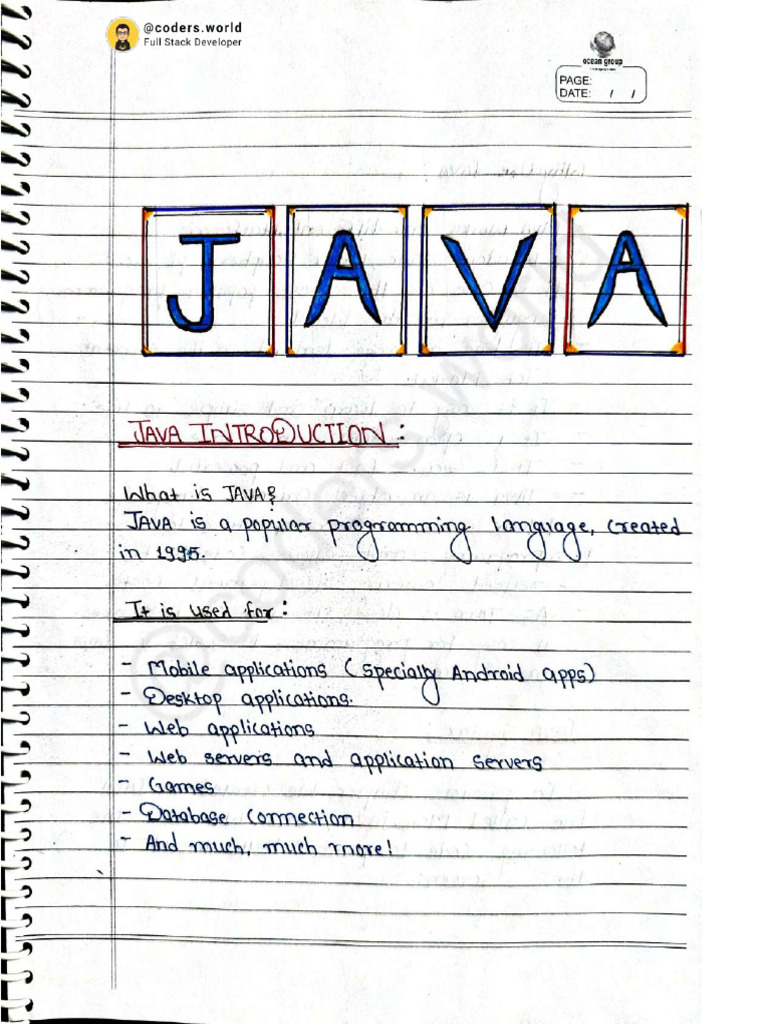 @coders.world
Full Stack Developer
ocean group
PAGE:
DATE: / /
JAVA
JAVA INTRODUCTION :
What is JAVA?
JAVA is a popular programming language, Created
in 1995.
It is used for :
- Mobile applications (specially Android apps)
- Desktop applications.
- Web applications
- Web servers and application servers
- Games
- Database Connection
- And much, much more!
@coders.world